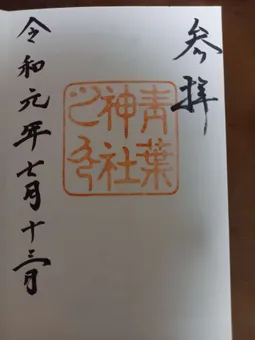 参拝
青葉
神社
之印
令和元年七月十三日